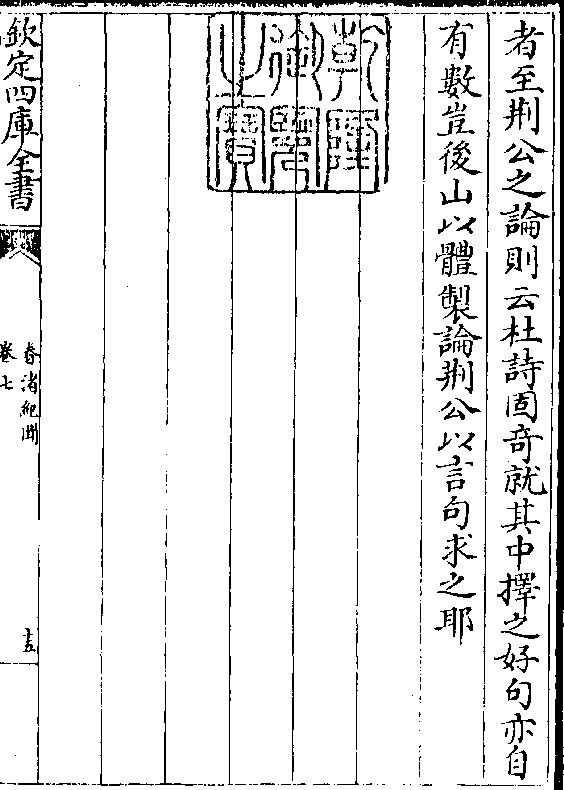 者至荆公之論則云杜詩固奇就其中擇之好句亦自
有數豈後山以體製論荆公以言句求之耶
乾隆
御覽
之寶
欽定四庫全書
春渚紀聞
卷七
十五